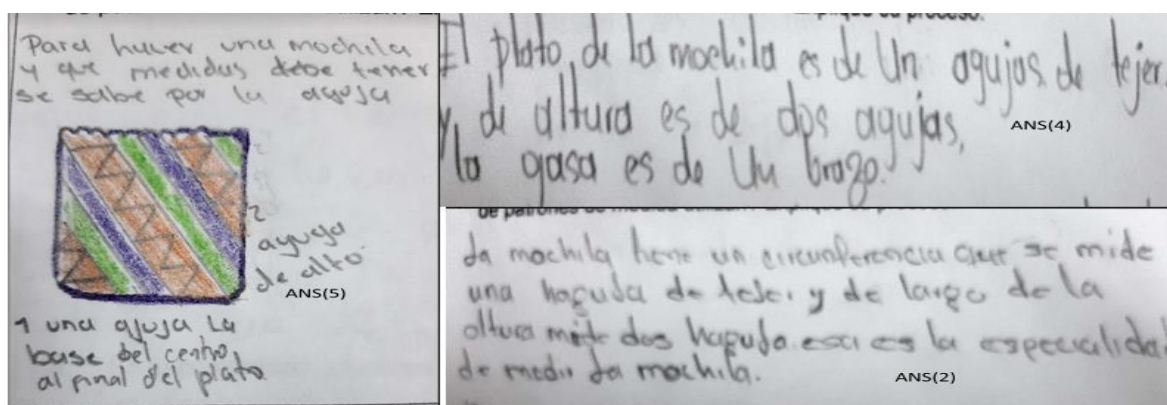 Para hacer una mochila
y que medidas debe tener
se sabe por la aguja
2
aguja
de alto.
ANS(5)
1 una aguja La
base del centro
al final del plato
El plato, de la mochila es de Un agujas de tejer.
y de altura es de dos agujas,
la gasa es de Un brazo.
ANS(4)
La mochila tiene un circunferencia que se mide
una haguja de tejer y de largo de la
altura mide dos haguja esa es la especialidad
de medir la mochila.
ANS(2)